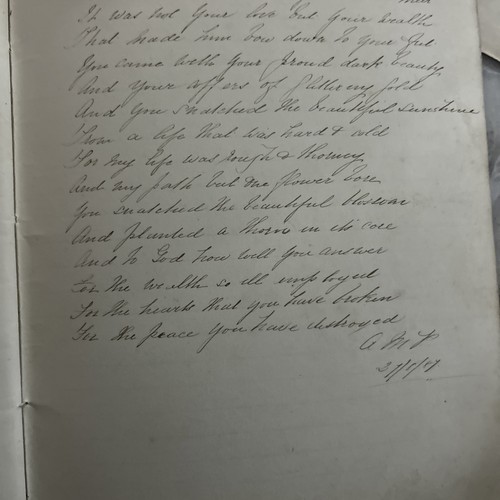 It was not your love but your wealth
That made him bow down to your feet
You came with your proud dark beauty
And your offers of glittering gold
And you snatched the beautiful sunshine
From a life that was hard & cold
For my life was rough & thorny
And my path but one flower bore
You snatched the beautiful blossom
And planted a thorn in its core
And to God how will you answer
For the wealth so ill employed
For the hearts that you have broken
For the peace you have destroyed
A M P